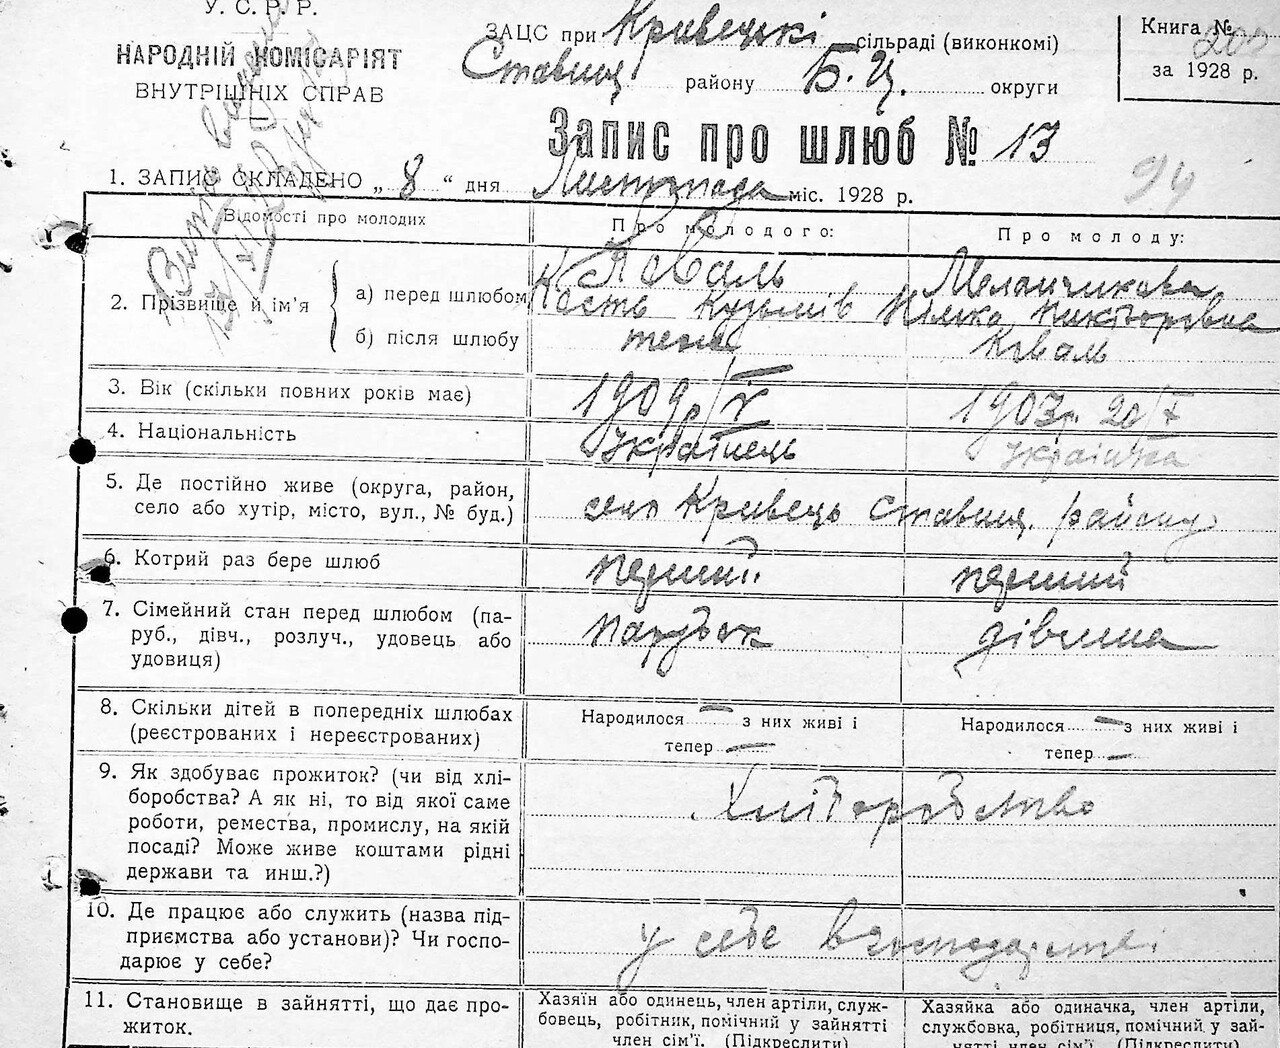 У. С. Р. Р.
НАРОДНІЙ КОМІСАРІЯТ
ВНУТРІШНІХ СПРАВ
ЗАЦС при Кривецькі сільраді (виконкомі)
Ставищ району Б. Ц. округи
Книга № 200
за 1928 р.
Запис про шлюб № 13
94
1. ЗАПИС СКЛАДЕНО „ 8 “ дня Листопада міс. 1928 р.
Відомості про молодих
Про молодого:
Про молоду:
2. Прізвище й ім'я
а) перед шлюбом
Коваль
Кость Кузьмів
Никторовна
б) після шлюбу
теж
Коваль
3. Вік (скільки повних років має)
1909р/V
1903р. 20/X
4. Національність
Українець
Українка
5. Де постійно живе (округа, район,
село або хутір, місто, вул., № буд.)
село Кривець Ставищ. району
6. Котрий раз бере шлюб
перший
перший
7. Сімейний стан перед шлюбом (па-
руб., дівч., розлуч., удовець або
удовиця)
парубок
дівчина
8. Скільки дітей в попередніх шлюбах
(реєстрованих і нереєстрованих)
Народилося — з них живі і
тепер —
Народилося — з них живі і
тепер —
9. Як здобуває прожиток? (чи від хлі-
боробства? А як ні, то від якої саме
роботи, ремества, промислу, на якій
посаді? Може живе коштами рідні
держави та инш.?)
Хліборобство
10. Де працює або служить (назва під-
приємства або установи)? Чи госпо-
дарює у себе?
у себе в господарстві
11. Становище в зайнятті, що дає про-
житок.
Хазяїн або одинець, член артілі, служ-
бовець, робітник, помічний у зайнятті
член сім'ї. (Підкреслити)
Хазяйка або одиначка, член артілі,
службовка, робітниця, помічний у зай-
нятті член сім'ї. (Підкреслити)